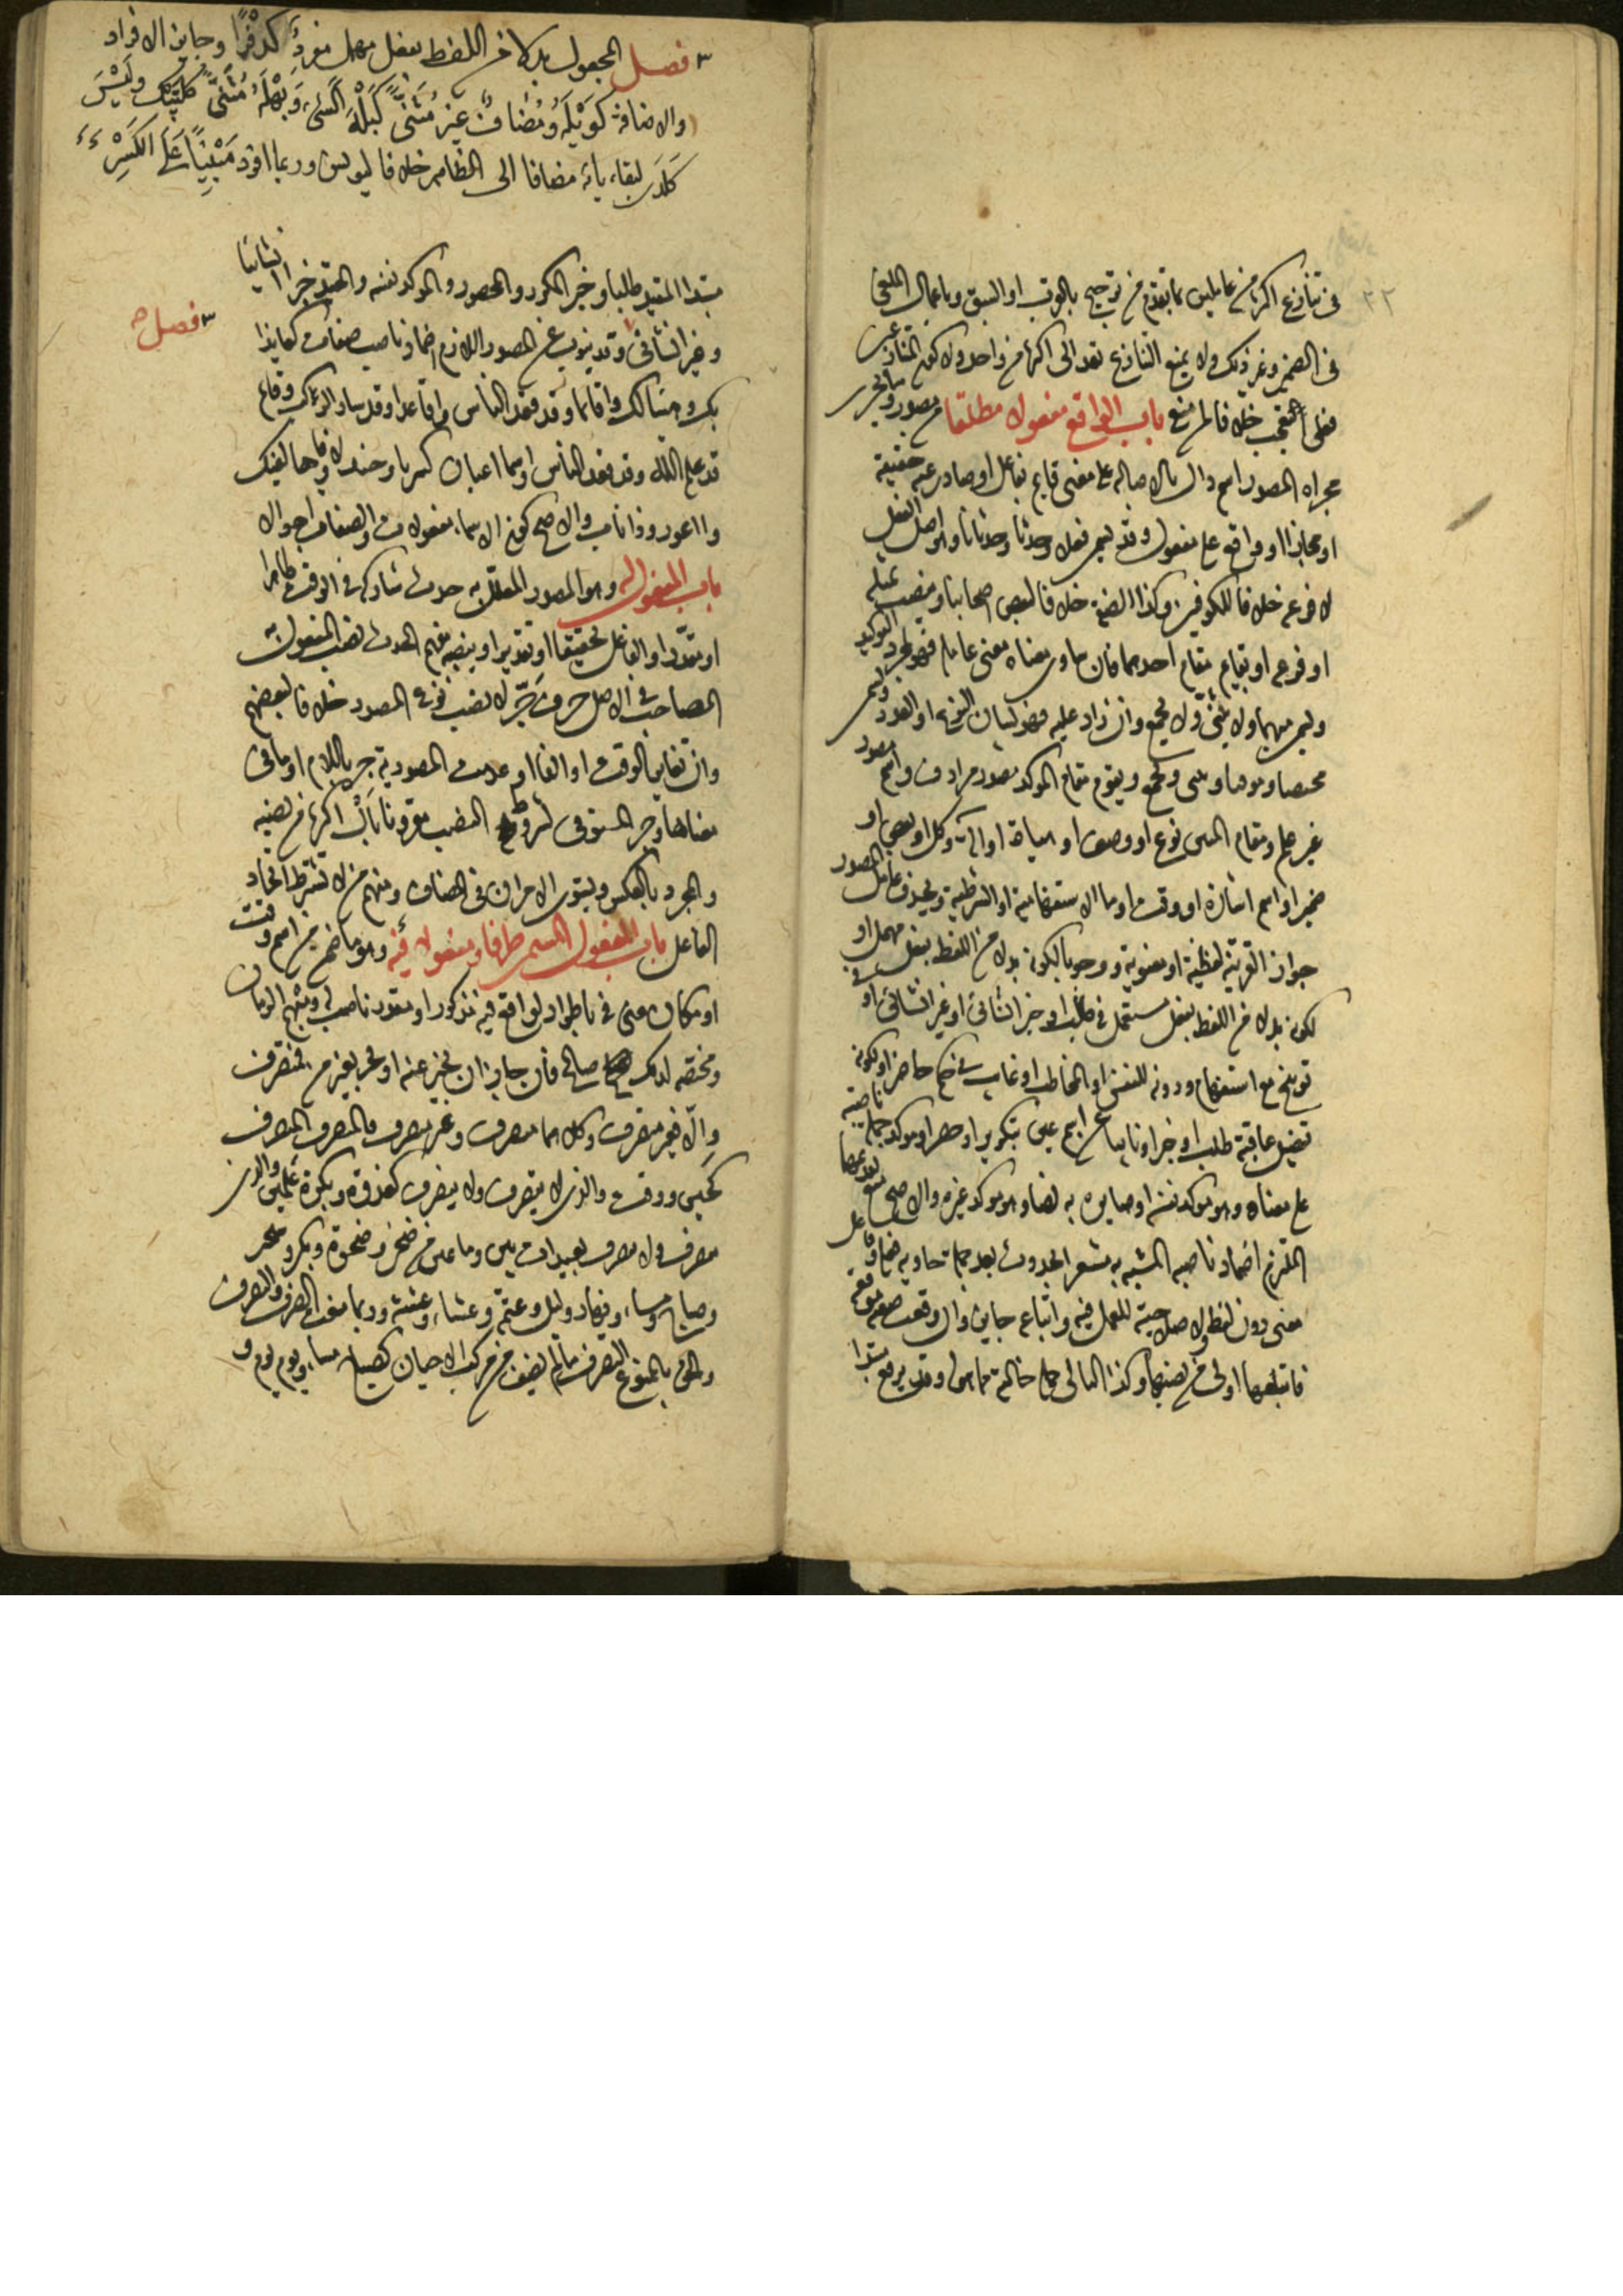 ٢٢
في تنازع اكثر من عاملين ما تقدم من ترجيح بالقرب او السبق وباعمال الملغى
في الضمير وغير ذلك ولا يمنع التنازع تعد الى اكثر من واحد ولا كون المتنازعين
فعلى التعجب خلافا لمن منع باب الواقع مفعولا مطلقا من مصدر وما يجري
مجراه المصدر اسم دال بالاصالة على معنى قايم بفاعل او صادر عنه حقيقة
او مجازا او واقع على مفعول وقد يسمى فعلا وحدثا وحدثانا وهو اصل الفعل
لا فرعه خلافا للكوفيين وكذا الصفة خلافا لبعض اصحابنا وينصب بمثله
او فرعه او بقايم مقام احدهما فان ساوى معناه معنى عامله فهو لمجرد التوكيد
ويسمى مبهما ولا يثنى ولا يجمع وان زاد عليه فهو لبيان النوع او العدد ويسمى
مختصا وموقتا ويثنى ويجمع ويقوم مقام الموكد مصدر مرادف واسم مصدر
غير علم ومقام المبين نوع او وصف او هيأة او آلة وكل او بعض او
ضمير او اسم اشارة او وقت او ما الاستفهامية او الشرطية ويحذف عامل المصدر
جوازا لقرينة لفظية او معنوية ووجوبا لكونه بدلا من اللفظ بفعل مهمل او
لكونه بدلا من اللفظ بفعل مستعمل في طلب او خبر انشائي او غير انشائي او في
توبيخ مع استفهام ودونه للنفس او المخاطب او غايب في حكم حاضر او لكونه
تفصيل عاقبة طلب او خبر او نايبا عن خبر اسم عين بتكرير او حصر او موكد جملة ناصية
على معناه وهو موكد نفسه او صايره به نصا وهو موكد غيره والاصح منع تقديمهما
الملتزم اضمار ناصبه المشبه به مشعر الحدوث بعد جملة حاوية فعله وفاعله
معنى دون لفظ ولا صلاحية للعمل فيه واتباعه جايز وان وقعت صفته موقعه
فاتباعها اولى من نصبها وكذا التالي جملة خالية مما هو له وقد يرفع مبتدا
٣ فصل المجعول بدلا من اللفظ بفعل مهمل مفرد كدفرا وجايز الافراد
والاضافة كويله ومضاف غير مثنى كبله الشيء وبهله ومثنى كلبيك وليس
كلدى لبقاء يائه مضافا الى الظاهر خلافا ليونس وربما افرد مبنيا على الكسر
مبتدا المفيد طلبا وخبر المكرر والمحصور والموكد نفسه والمفيد خبرا انشائيا
وغير انشائي وقد ينوب عن المصدر اللازم اضمار ناصبه صفات كعايذا
٣ فصل ح
بك وهنيا لك واقايما وقد قعد الناس واقاعدا وقد سار الركب وقايما
قد علم الله وقد قعد الناس او اسما اعيان كتربا وجندلا وفاها لفيك
وااعور وذا ناب والاصح كون الاسماء مفعولات والصفات احوالا
باب المفعول له وهو المصدر المعلل به حدث شاركه في الوقت ظاهرا
او مقدرا والفاعل تحقيقا او تقديرا وينصبه مفهم الحدث نصب المفعول به
المصاحب في الاصل حرف جر لا نصب نوع المصدر خلافا لبعضهم
وان تغاير الوقت او الفاعل او عدمت المصدرية جر باللام او ما في
معناها وجر المستوفي لشروط النصب مقرونا بال اكثر من نصبه
والمجرد بالعكس ويستوي الامران في المضاف ومنهم من لا يشترط اتحاد
الفاعل باب المفعول المسمى ظرفا ومفعولا فيه وهو ما ضمن من اسم وقت
او مكان معنى في باطراد لواقع فيه مذكور او مقدر ناصب له ومبهم الزمان
ومختصه لذلك صالح فان جاز ان يخبر عنه او يجر بغير من فمتصرف
والا فغير متصرف وكلاهما منصرف وغير منصرف فالمتصرف المنصرف
كحين ووقت والذي لا يتصرف ولا ينصرف كغدوة وبكرة علمين والذي
يتصرف ولا ينصرف بعيدات بين وما عين من ضحى وضحوة وبكر وسحر
وصباح ومساء ونهار وليل وعتمة وعشاء وعشية وربما منعت الصرف والتصرف
والحق بالممنوع التصرف مالم يضف من مركب الاحيان كصباح مساء ويوم يوم و